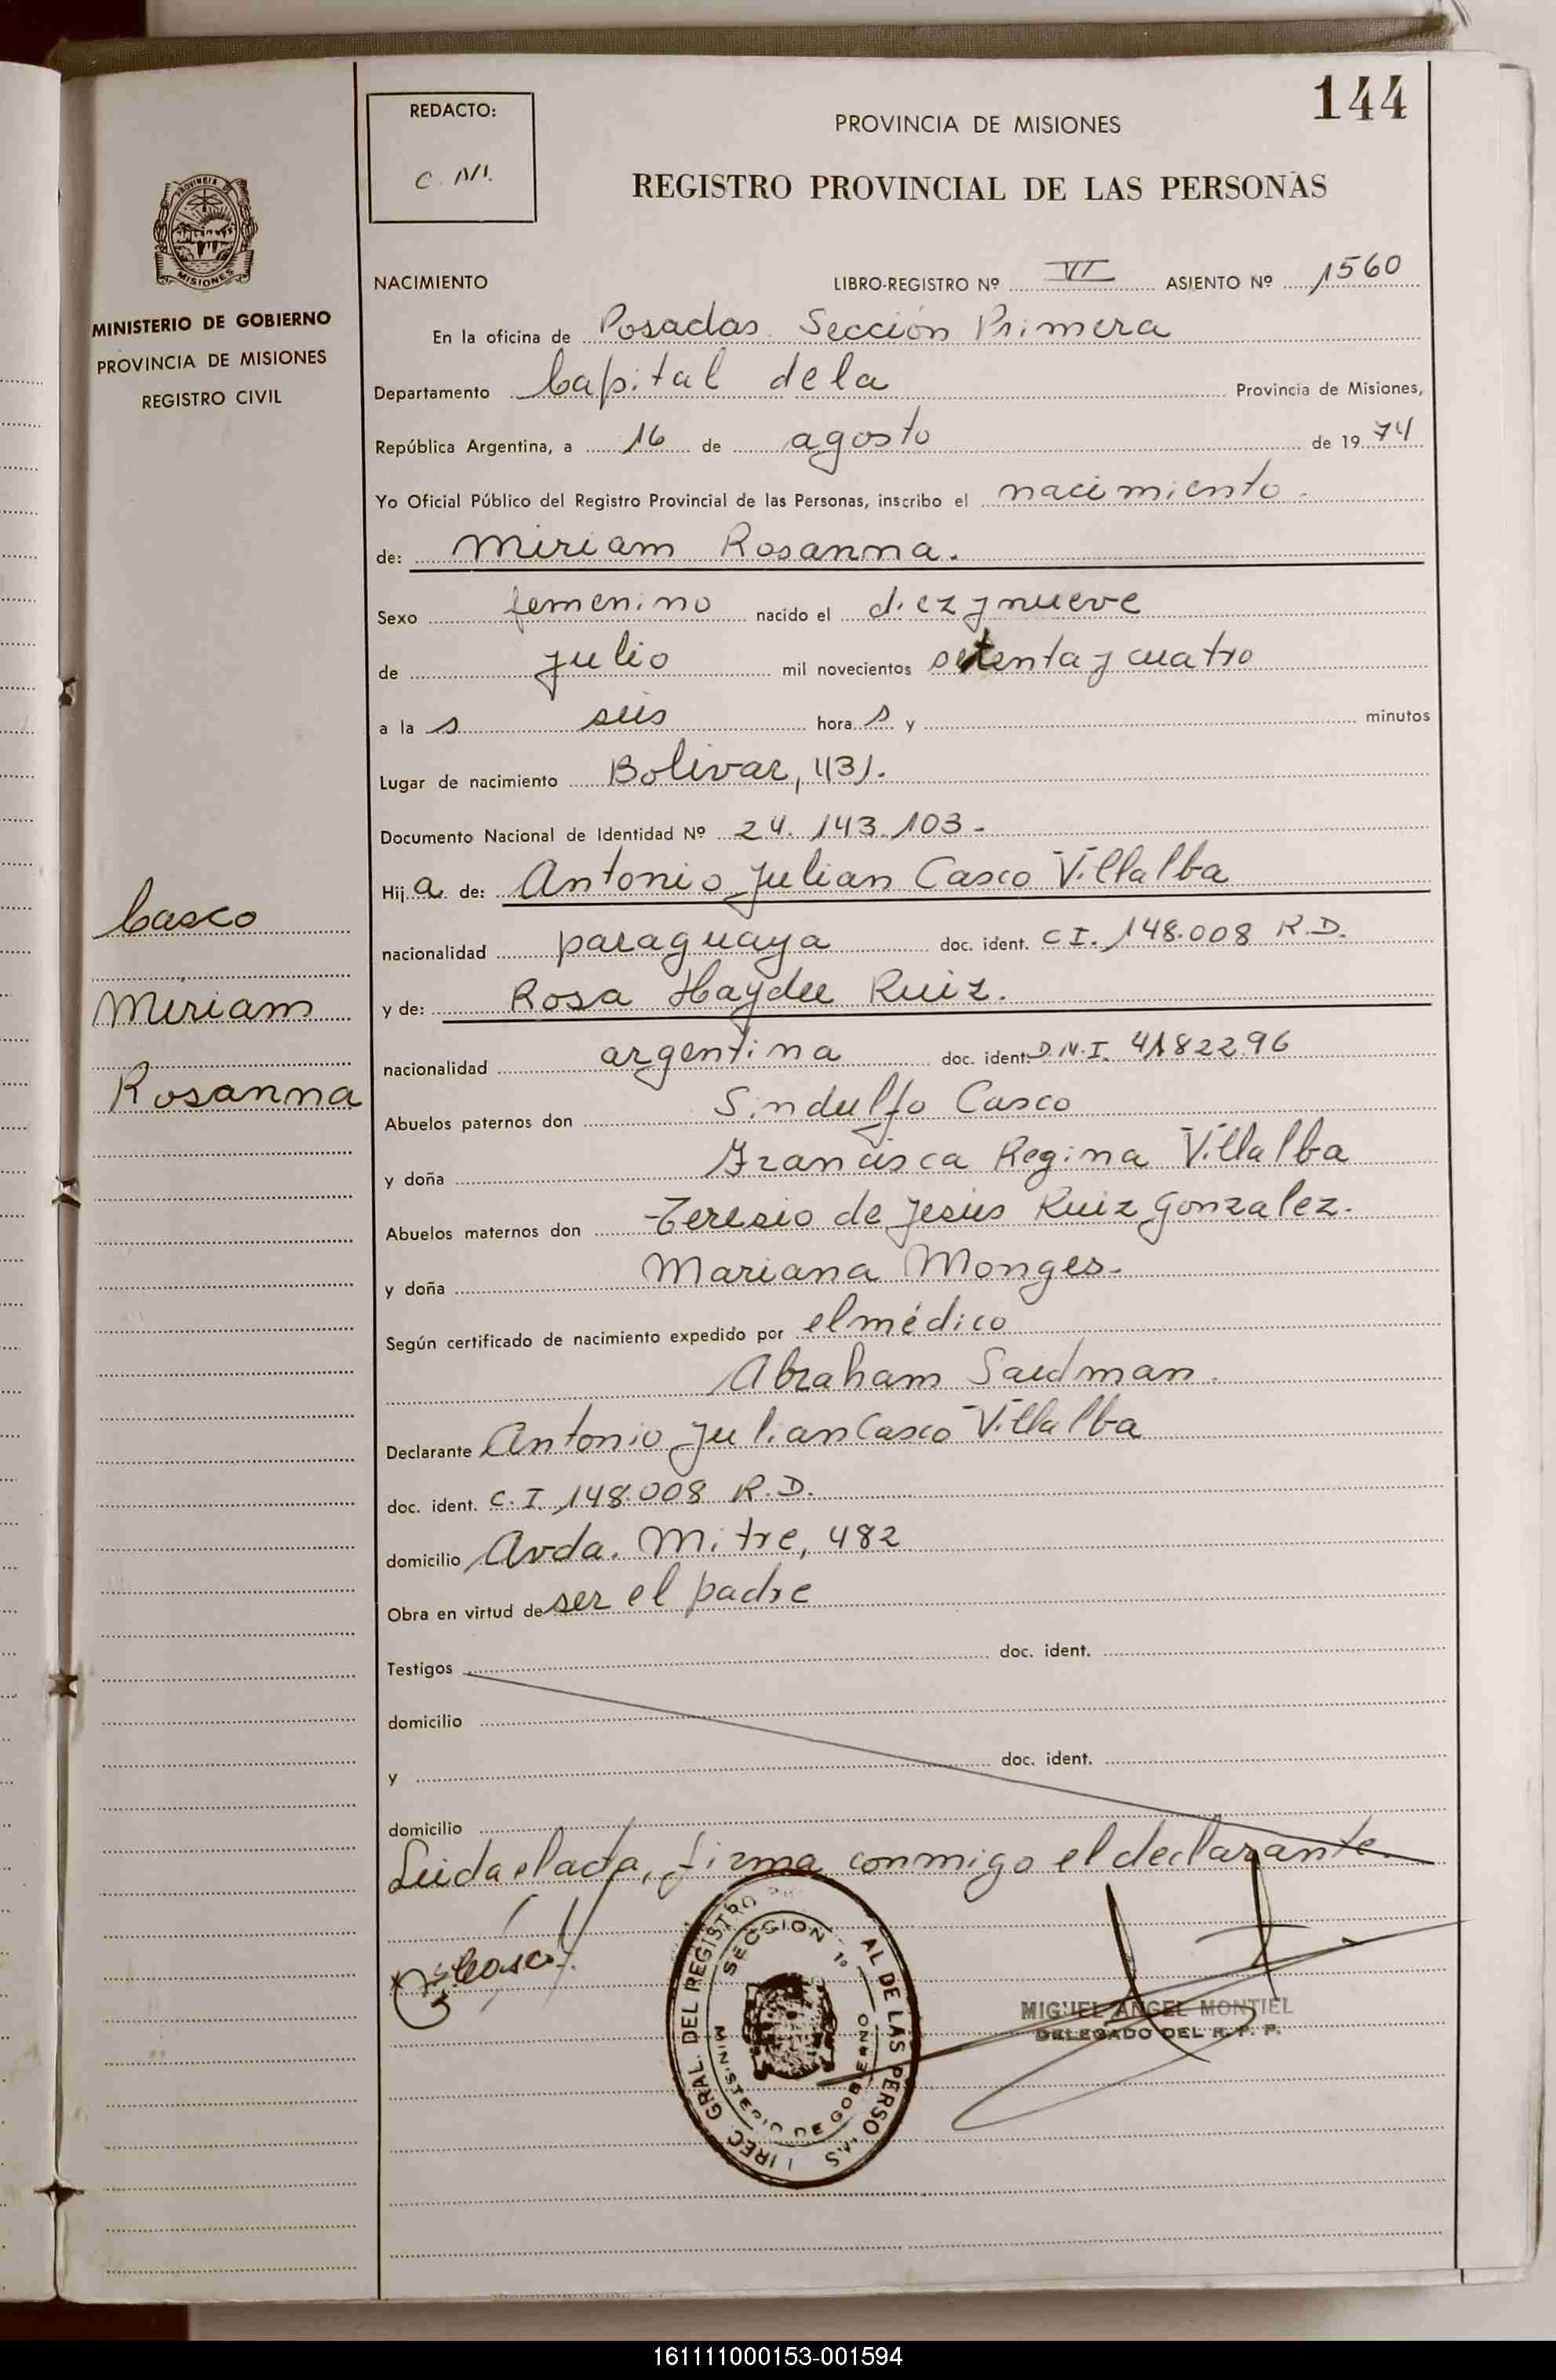 144
REDACTO:
C. M.
PROVINCIA DE MISIONES
REGISTRO PROVINCIAL DE LAS PERSONAS
PROVINCIA DE
MISIONES
MINISTERIO DE GOBIERNO
PROVINCIA DE MISIONES
REGISTRO CIVIL
NACIMIENTO LIBRO-REGISTRO Nº VI ASIENTO Nº 1560
En la oficina de Posadas Sección Primera
Departamento Capital de la Provincia de Misiones,
República Argentina, a 16 de agosto de 1974
Yo Oficial Público del Registro Provincial de las Personas, inscribo el nacimiento.
de: Miriam Rosanna.
Sexo femenino nacido el diez y nueve
de julio mil novecientos setenta y cuatro
a la s seis hora s y minutos
Lugar de nacimiento Bolivar, 1131.
Documento Nacional de Identidad Nº 24.143.103-
Hij a de: Antonio Julian Casco Villalba
nacionalidad paraguaya doc. ident. C I. 148.008 R.D.
y de: Rosa Haydee Ruiz.
nacionalidad argentina doc. ident. D.N.I. 4182296
Abuelos paternos don Sindulfo Casco
y doña Francisca Regina Villalba
Abuelos maternos don Teresio de Jesús Ruiz Gonzalez.
y doña Mariana Monges-
Según certificado de nacimiento expedido por el médico
Abraham Saidman.
Declarante Antonio Julian Casco Villalba
doc. ident. C. I. 148.008 R.D.
domicilio Avda. Mitre, 482
Obra en virtud de ser el padre
Testigos doc. ident.
domicilio
y doc. ident.
domicilio
Leida el acta, firma conmigo el declarante.
Casco
Miriam
Rosanna
Casco
DIREC GRAL. DEL REGISTRO AL DE LAS PERSO AS
SECCION 1º
MINISTERIO DE GOBIERNO
MIGUEL ANGEL MONTIEL
DELEGADO DEL R. P. P.
161111000153-001594